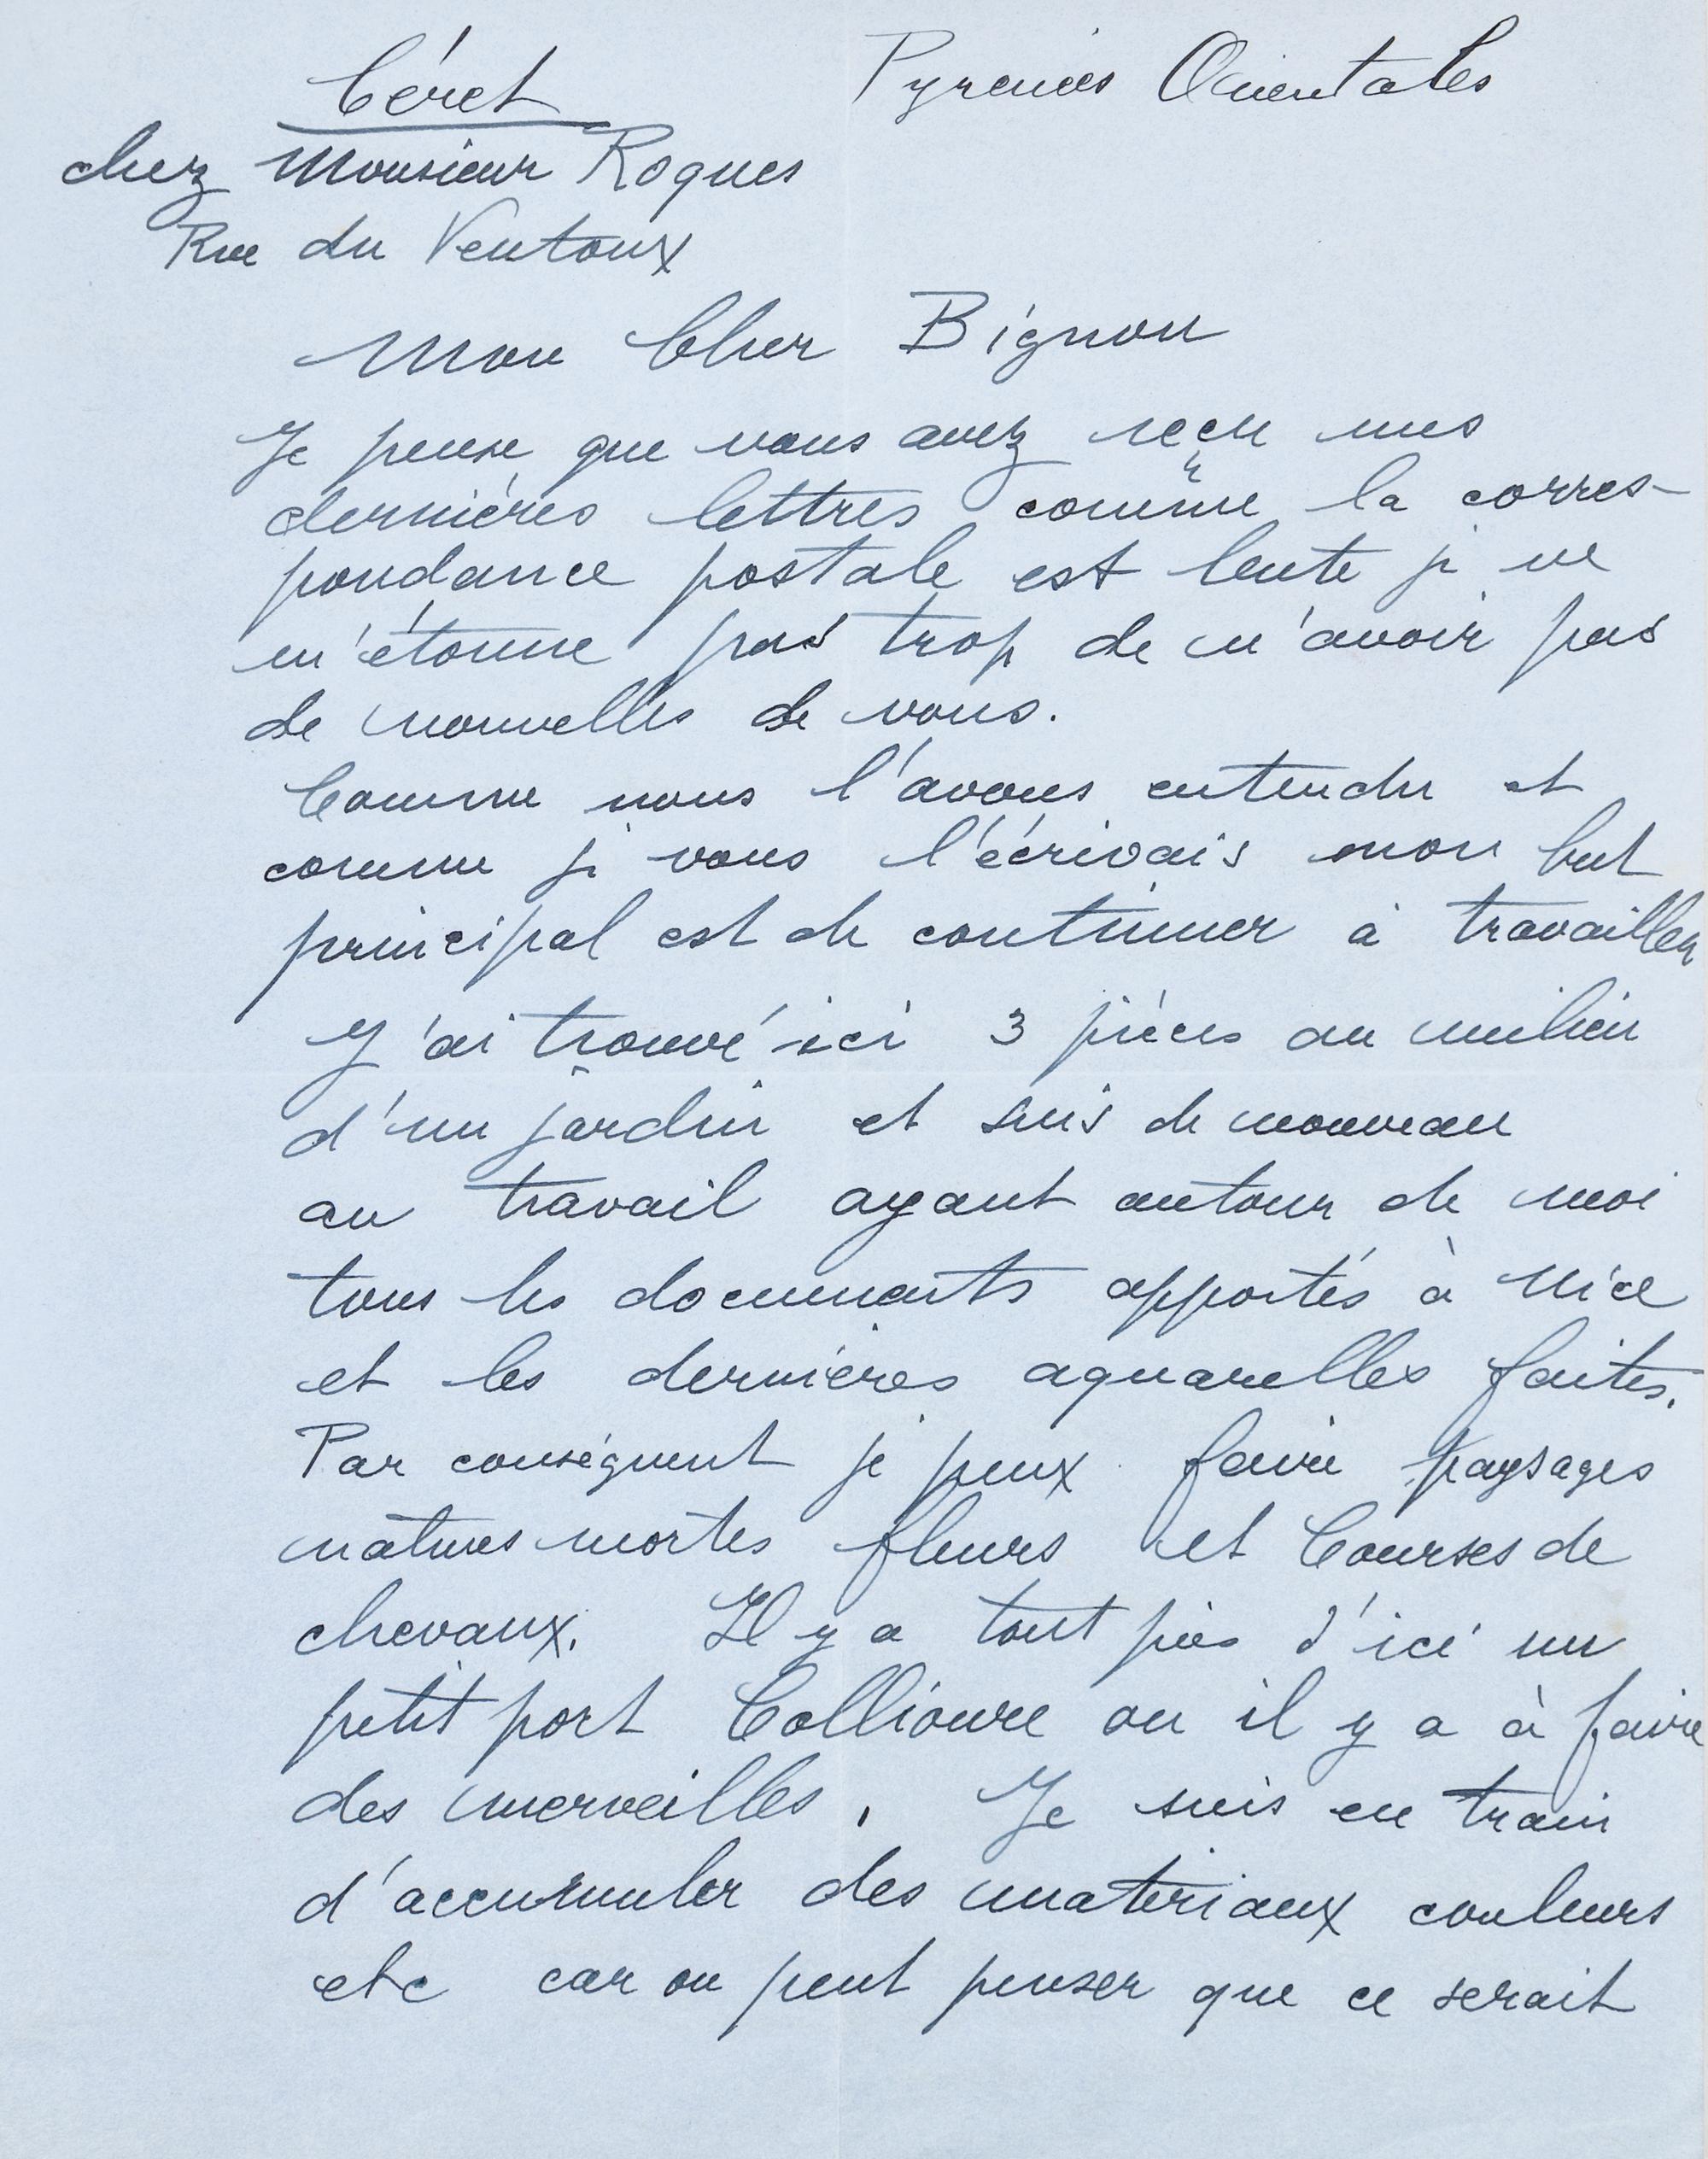 Céret Pyrenées Orientales
chez Monsieur Roques
Rue du Ventoux
Mon Cher Bignou
Je pense que vous avez reçu mes
dernières lettres comme la corres-
pondance postale est lente je ne
m'étonne pas trop de n'avoir pas
de nouvelles de vous.
Comme nous l'avons entendu et
comme je vous l'écrivais mon but
principal est de continuer à travailler
J'ai trouvé ici 3 pièces au milieu
d'un jardin et suis de nouveau
au travail ayant autour de moi
tous les documents apportés à Nice
et les dernières aquarelles faites.
Par conséquent je peux faire paysages
natures mortes fleurs et Courses de
chevaux. Il y a tout près d'ici un
petit port Collioure ou il y a à faire
des merveilles. Je suis en train
d'accumuler des materiaux couleurs
etc car on peut penser que ce serait